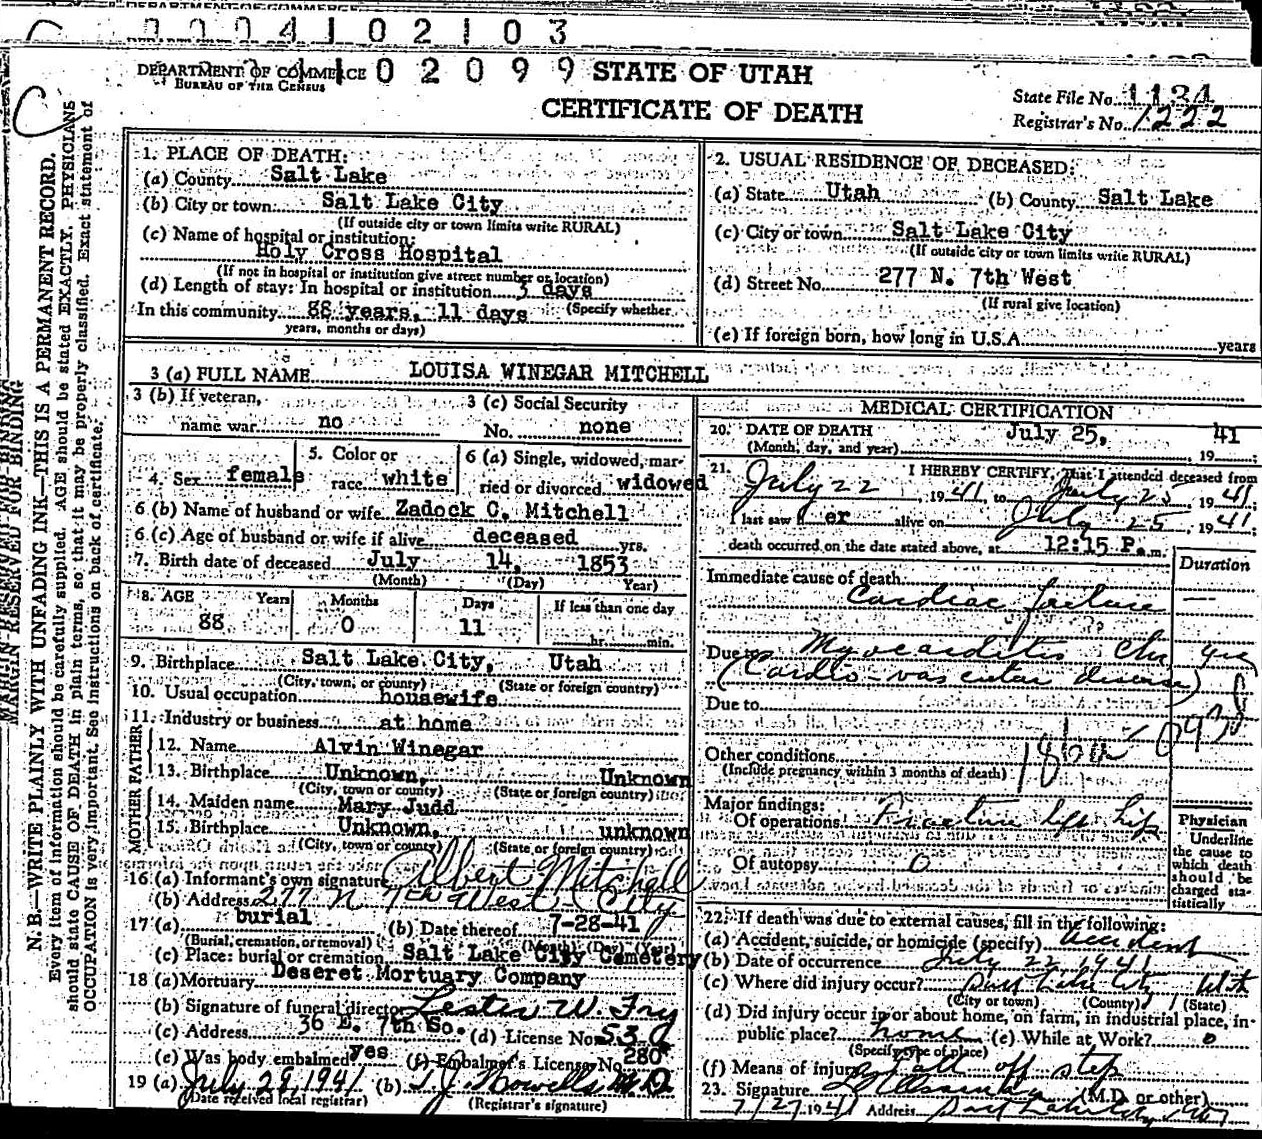 DEPARTMENT OF COMMERCE
0 0 0 4 1 0 2 1 0 3
DEPARTMENT OF COMMERCE
BUREAU OF THE CENSUS
0 2 0 9 9
STATE OF UTAH
CERTIFICATE OF DEATH
State File No. 1134
Registrar's No. 1222
C
MARGIN RESERVED FOR BINDING
N. B.—WRITE PLAINLY WITH UNFADING INK—THIS IS A PERMANENT RECORD.
Every item of information should be carefully supplied. AGE should be stated EXACTLY. PHYSICIANS
should state CAUSE OF DEATH in plain terms, so that it may be properly classified. Exact statement of
OCCUPATION is very important. See instructions on back of certificate.
1. PLACE OF DEATH:
(a) County Salt Lake
(b) City or town Salt Lake City
(If outside city or town limits write RURAL)
(c) Name of hospital or institution:
Holy Cross Hospital
(If not in hospital or institution give street number or location)
(d) Length of stay: In hospital or institution 3 days
In this community 88 years, 11 days (Specify whether
years, months or days)
2. USUAL RESIDENCE OF DECEASED:
(a) State Utah (b) County Salt Lake
(c) City or town Salt Lake City
(If outside city or town limits write RURAL)
(d) Street No. 277 N. 7th West
(If rural give location)
(e) If foreign born, how long in U.S.A. years
3 (a) FULL NAME LOUISA WINEGAR MITCHELL
3 (b) If veteran,
name war no
3 (c) Social Security
No. none
4. Sex female
5. Color or
race white
6 (a) Single, widowed, mar-
ried or divorced widowed
6 (b) Name of husband or wife Zadock C. Mitchell
6 (c) Age of husband or wife if alive deceased yrs.
7. Birth date of deceased July 14, 1853
(Month) (Day) Year)
8. AGE Years Months Days If less than one day
88 0 11 hr. min.
9. Birthplace Salt Lake City, Utah
(City, town, or county) (State or foreign country)
10. Usual occupation housewife
11. Industry or business at home
FATHER
12. Name Alvin Winegar
13. Birthplace Unknown, Unknown
(City, town or county) (State or foreign country)
MOTHER
14. Maiden name Mary Judd
15. Birthplace Unknown, unknown
(City, town or county) (State or foreign country)
16 (a) Informant's own signature Albert Mitchell
(b) Address 277 N 7th West - City
17 (a) burial (b) Date thereof 7-28-41
(Burial, cremation, or removal) (Month) (Day) (Year)
(c) Place: burial or cremation Salt Lake City Cemetery
18 (a) Mortuary Deseret Mortuary Company
(b) Signature of funeral director Lester W. Fry
(c) Address 36 E. 7th So. (d) License No. 530
(e) Was body embalmed yes (f) Embalmer's License No. 280
19 (a) July 29, 1941 (b) T. J. Howells M.D.
(Date received local registrar) (Registrar's signature)
MEDICAL CERTIFICATION
20. DATE OF DEATH July 25, 41
(Month, day, and year) 19
21. I HEREBY CERTIFY, That I attended deceased from
July 22, 1941, to July 25, 1941;
I last saw h er alive on July 25, 1941;
death occurred on the date stated above, at 12:15 P.m.
Duration
Immediate cause of death
Cardiac failure —
Due to Myocarditis Chr yrs
(Cardio-vascular disease)
Due to
930
Other conditions
(Include pregnancy within 3 months of death)
Major findings:
Of operations Fracture left hip
Of autopsy 0
Physician
Underline
the cause to
which death
should be
charged sta-
tistically
22. If death was due to external causes, fill in the following:
(a) Accident, suicide, or homicide (specify) accident
(b) Date of occurrence July 22 1941
(c) Where did injury occur? Salt Lake City Utah
(City or town) (County) (State)
(d) Did injury occur in or about home, on farm, in industrial place, in
public place? home (e) While at Work? o
(Specify type of place)
(f) Means of injury fall off step
23. Signature (M.D. or other)
7/27 1941 Address Salt Lake City